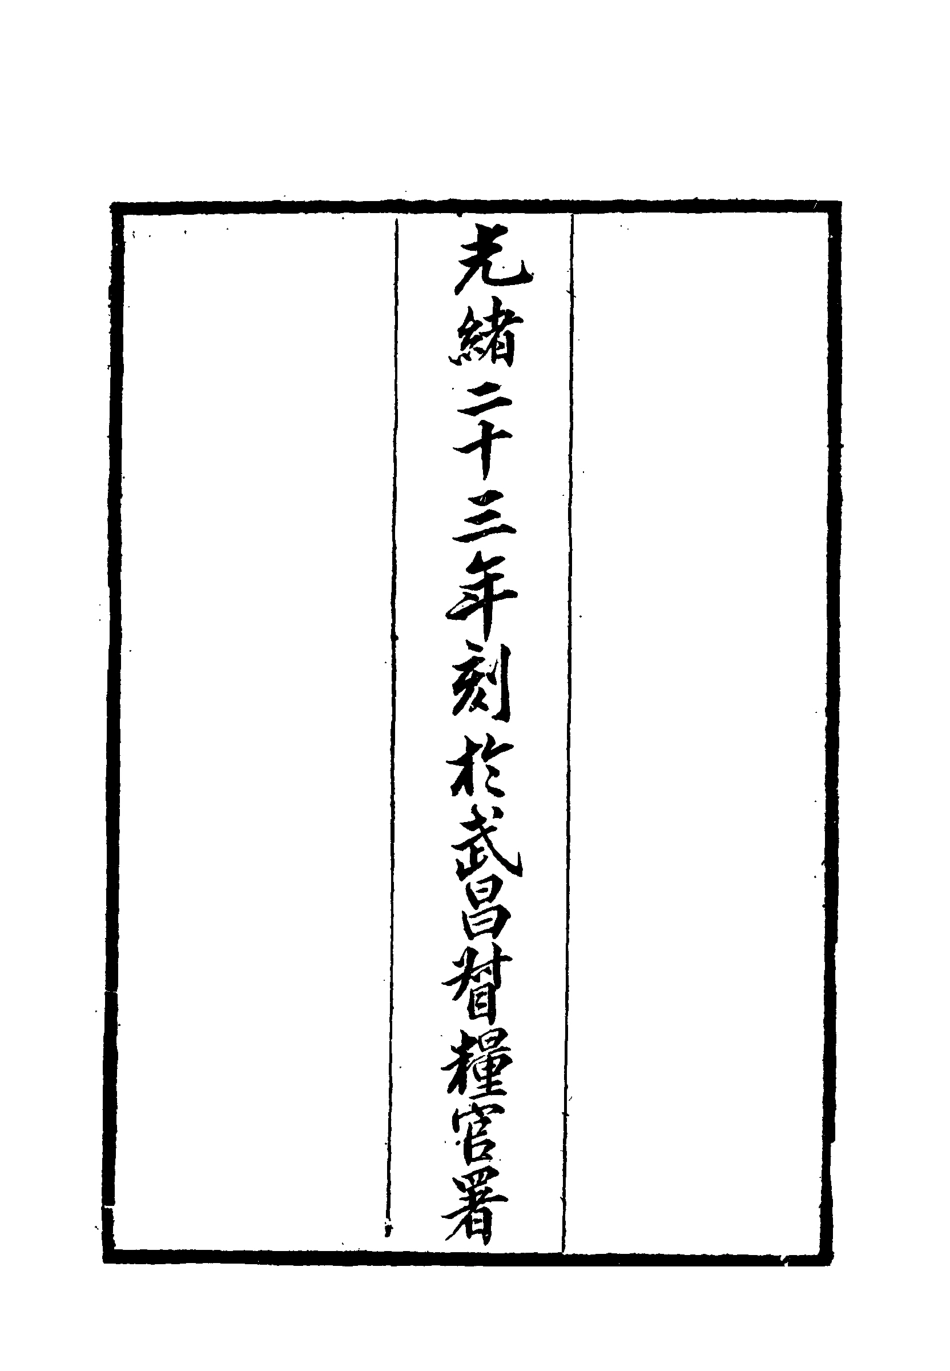 光緒二十三年刻於武昌督糧官署